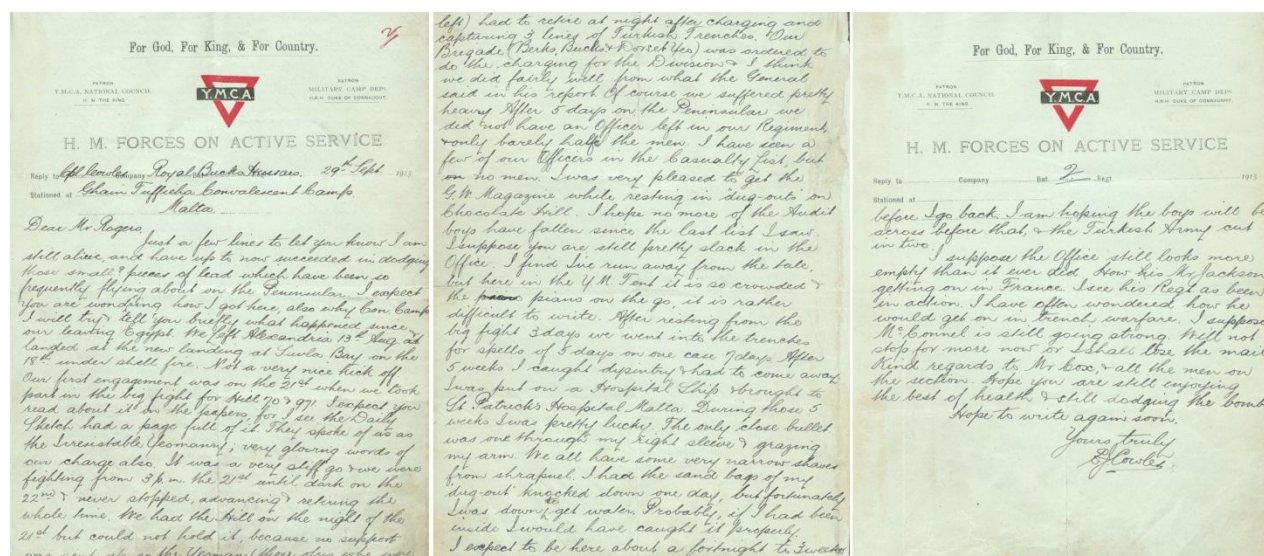 For God, For King, & For Country.
PATRON
Y.M.C.A. NATIONAL COUNCIL.
H. M. THE KING
Y.M.C.A
PATRON
MILITARY CAMP DEPT.
H.R.H. DUKE OF CONNAUGHT.
H. M. FORCES ON ACTIVE SERVICE
Reply to Cpl Cowles Company Royal Bucks Hussars. 29th Sept. 1915
Stationed at Ghain Tuffieha Convalescent Camp
Malta.
Dear Mr Rogers,
Just a few lines to let you know I am
still alive, and have up to now succeeded in dodging
those small? pieces of lead which have been so
frequently flying about on the Peninsular. I expect
you are wondring how I got here, also why Con. Camp
I will try & tell you briefly what happened since
our leaving Egypt. We left Alexandria 13th Aug. at
landed at the new landing at Suvla Bay on the
18th under shell fire. Not a very nice kick off.
Our first engagement was on the 21st when we took
part in the big fight for Hill 70 & 971. I expect you
read about it in the papers, for I see the Daily
Sketch had a page full of it. They spoke of us as
the Irresistable Yeomanry; very glowing words of
our charge also. It was a very stiff go & we were
fighting from 3 p.m. the 21st until dark on the
22nd & never stopped, advancing & retiring the
whole time. We had the Hill on the night of the
21st but could not hold it, because no support
left) had to retire at night after charging and
capturing 3 lines of Turkish Trenches. Our
Brigade (Berks, Bucks & Dorset Yeo) was ordered to
do the charging for the Division & I think
we did fairly well from what the General
said in his report. Of course we suffered pretty
heavy. After 5 days on the Peninsular we
did not have an Officer left in our Regiment
& only barely half the men. I have seen a
few of our Officers in the Casualty list, but
no men. I was very pleased to get the
G.W. Magazine while resting in "dug-outs" on
Chocolate Hill. I hope no more of the Audit
boys have fallen since the last list I saw.
I suppose you are still pretty slack in the
Office. I find I've run away from the tale,
but here in the Y.M. Tent it is so crowded &
the piano on the go, it is rather
difficult to write. After resting from the
big fight 3 days we went into the trenches
for spells of 5 days on one case 7 days. After
5 weeks I caught dysintry & had to come away
I was put on a Hospital Ship & brought to
St Patrick's Hospital Malta. During those 5
weeks I was pretty lucky. The only close bullet
was one through my right sleeve & grazing
my arm. We all have some very narrow shaves
from shrapnel. I had the sand bags of my
dug-out knocked down one day, but fortunately
I was down to get water. Probably, if I had been
inside I would have caught it properly.
I expect to be here about a fortnight to 3 weeks
For God, For King, & For Country.
PATRON
Y.M.C.A. NATIONAL COUNCIL.
H. M. THE KING
Y.M.C.A
PATRON
MILITARY CAMP DEPT.
H.R.H. DUKE OF CONNAUGHT.
H. M. FORCES ON ACTIVE SERVICE
Reply to Company Bat. 2 Regt. 1915
Stationed at
before I go back. I am hoping the boys will be
across before that, & the Turkish Army cut
in two.
I suppose the Office still looks more
empty than it ever did. How his Mr. Jackson
getting on in France. I see his Regt as been
in action. I have often wondered how he
would get on in trench warfare. I suppose
Mc Connel is still going strong. Will not
stop for more now or I shall lose the mail
Kind regards to Mr Cox, & all the men on
the section. Hope you are still enjoying
the best of health, & still dodging the bomb
Hope to write again soon,
Yours truly
Cowles